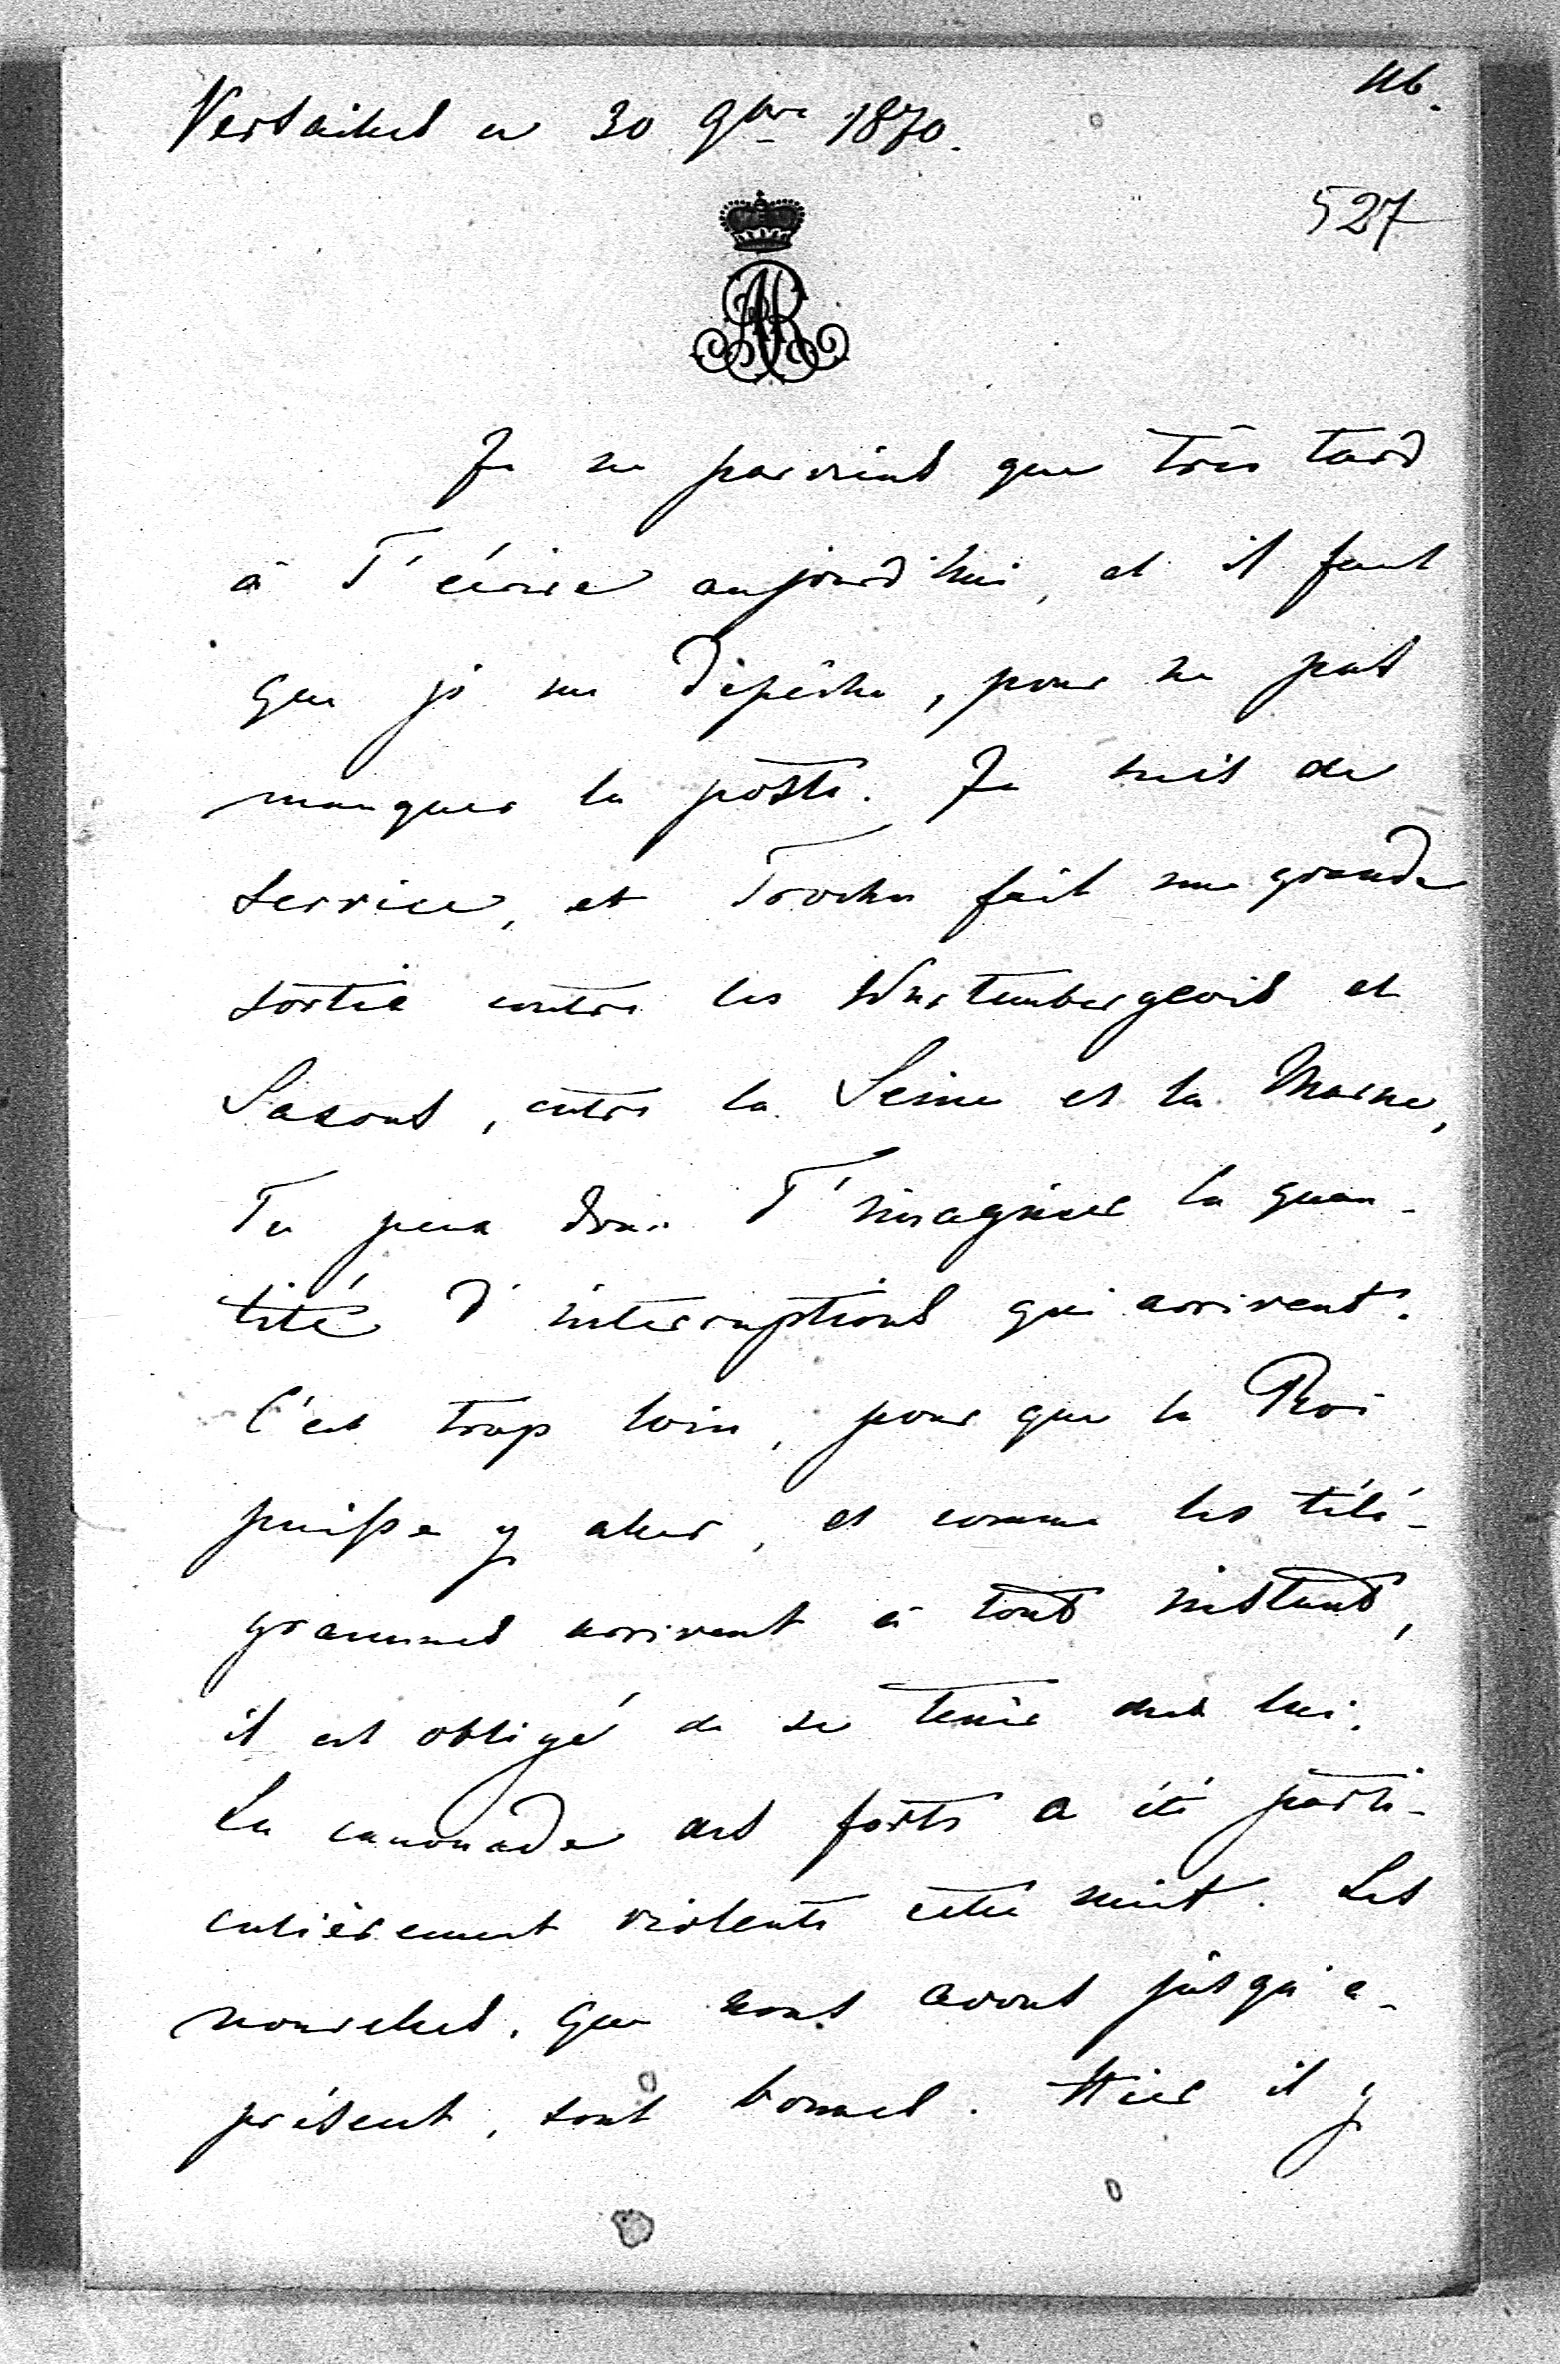 116.
Versailles ce 30 9bre 1870.
527
Je ne parviens que très tard
à T'écrire aujourd'hui, et il faut
que je me dépêche, pour ne pas
manquer la poste. Je suis de
service, et Trochu fait une grande
sortie contre les Wurtembergeois et
Saxons, entre la Seine et la Marne,
Tu peux donc T'imaginer la quan-
tité d'interruptions qui arrivent.
C'est trop loin, pour que le Roi
puisse y aller, et comme les télé-
grammes arrivent à tout instant,
il est obligé de se tenir chez lui.
La canonade des forts a été parti-
culièrement violente cette nuit. Les
nouvelles, que nous avons jusqu'a-
présent, sont bonnes. Hier il y